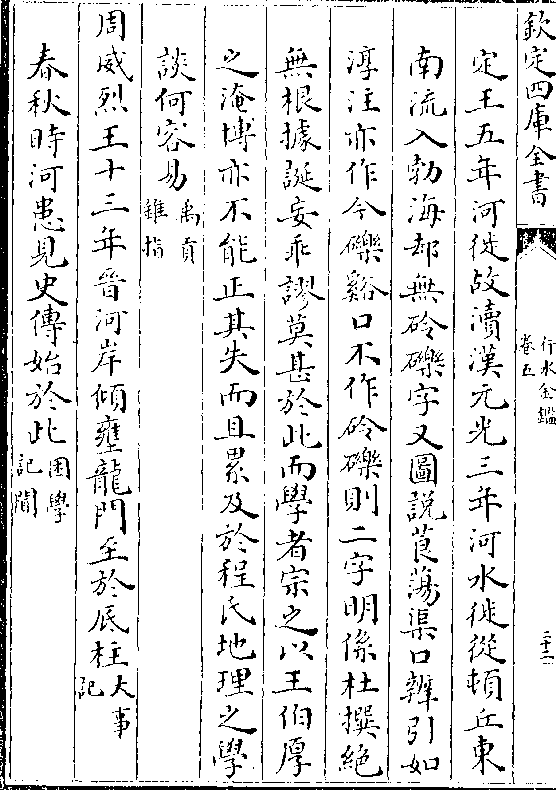 欽定四庫全書
行水金鑑
卷五
二十二
定王五年河徙故瀆漢元光三年河水徙從頓丘東
南流入勃海却無砱礫字又圖說莨蕩渠口辯引如
淳注亦作今礫谿口不作砱礫則二字明係杜撰絶
無根據誕妄乖謬莫甚於此而學者宗之以王伯厚
之淹博亦不能正其失而且累及於程氏地理之學
談何容易禹貢錐指
周威烈王十三年晉河岸傾壅龍門至於底柱大事記
春秋時河患見史傳始於此困學記聞